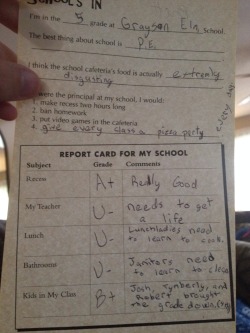 SCHOOL'S IN
I'm in the 5 grade at Grayson Elm. school
The best thing about school is P.E.
I think the school cafeteria's food is actually extremly
disgusting
were the principal at my school, I would:
1. make recess two hours long
2. ban homework
3. put video games in the cafeteria
4. give every class a pizza party
every day
REPORT CARD FOR MY SCHOOL
Subject Grade Comments
Recess A+ Really Good
My Teacher U- needs to get
a life
Lunch U- Lunchladies need
to learn to cook.
Bathrooms U- Janitors need
to learn to clean
Kids in My Class B+ Josh, Kymberly, and
Robert brought
the grade down.